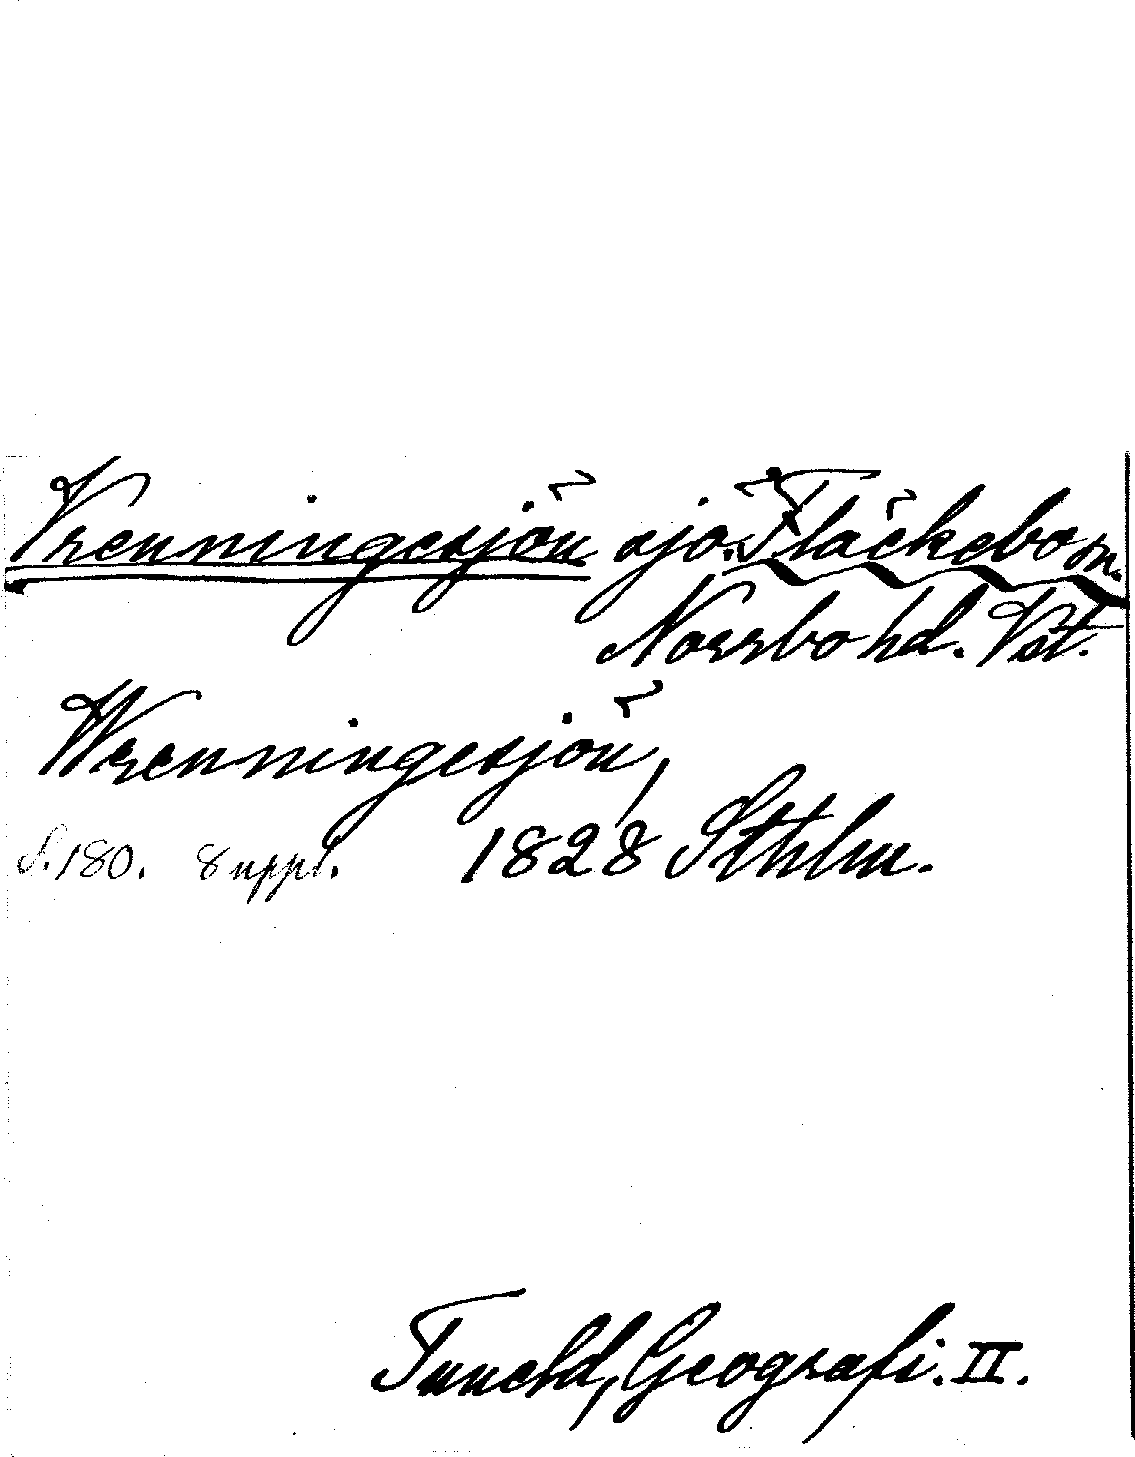 Vrenningesjön sjö. Fläckebo sn.
Norrbo hd. Vstm.
Wrenningesjön,
S. 180. 8 uppl. 1828 Sthlm.
Tuneld, Geografi. II.